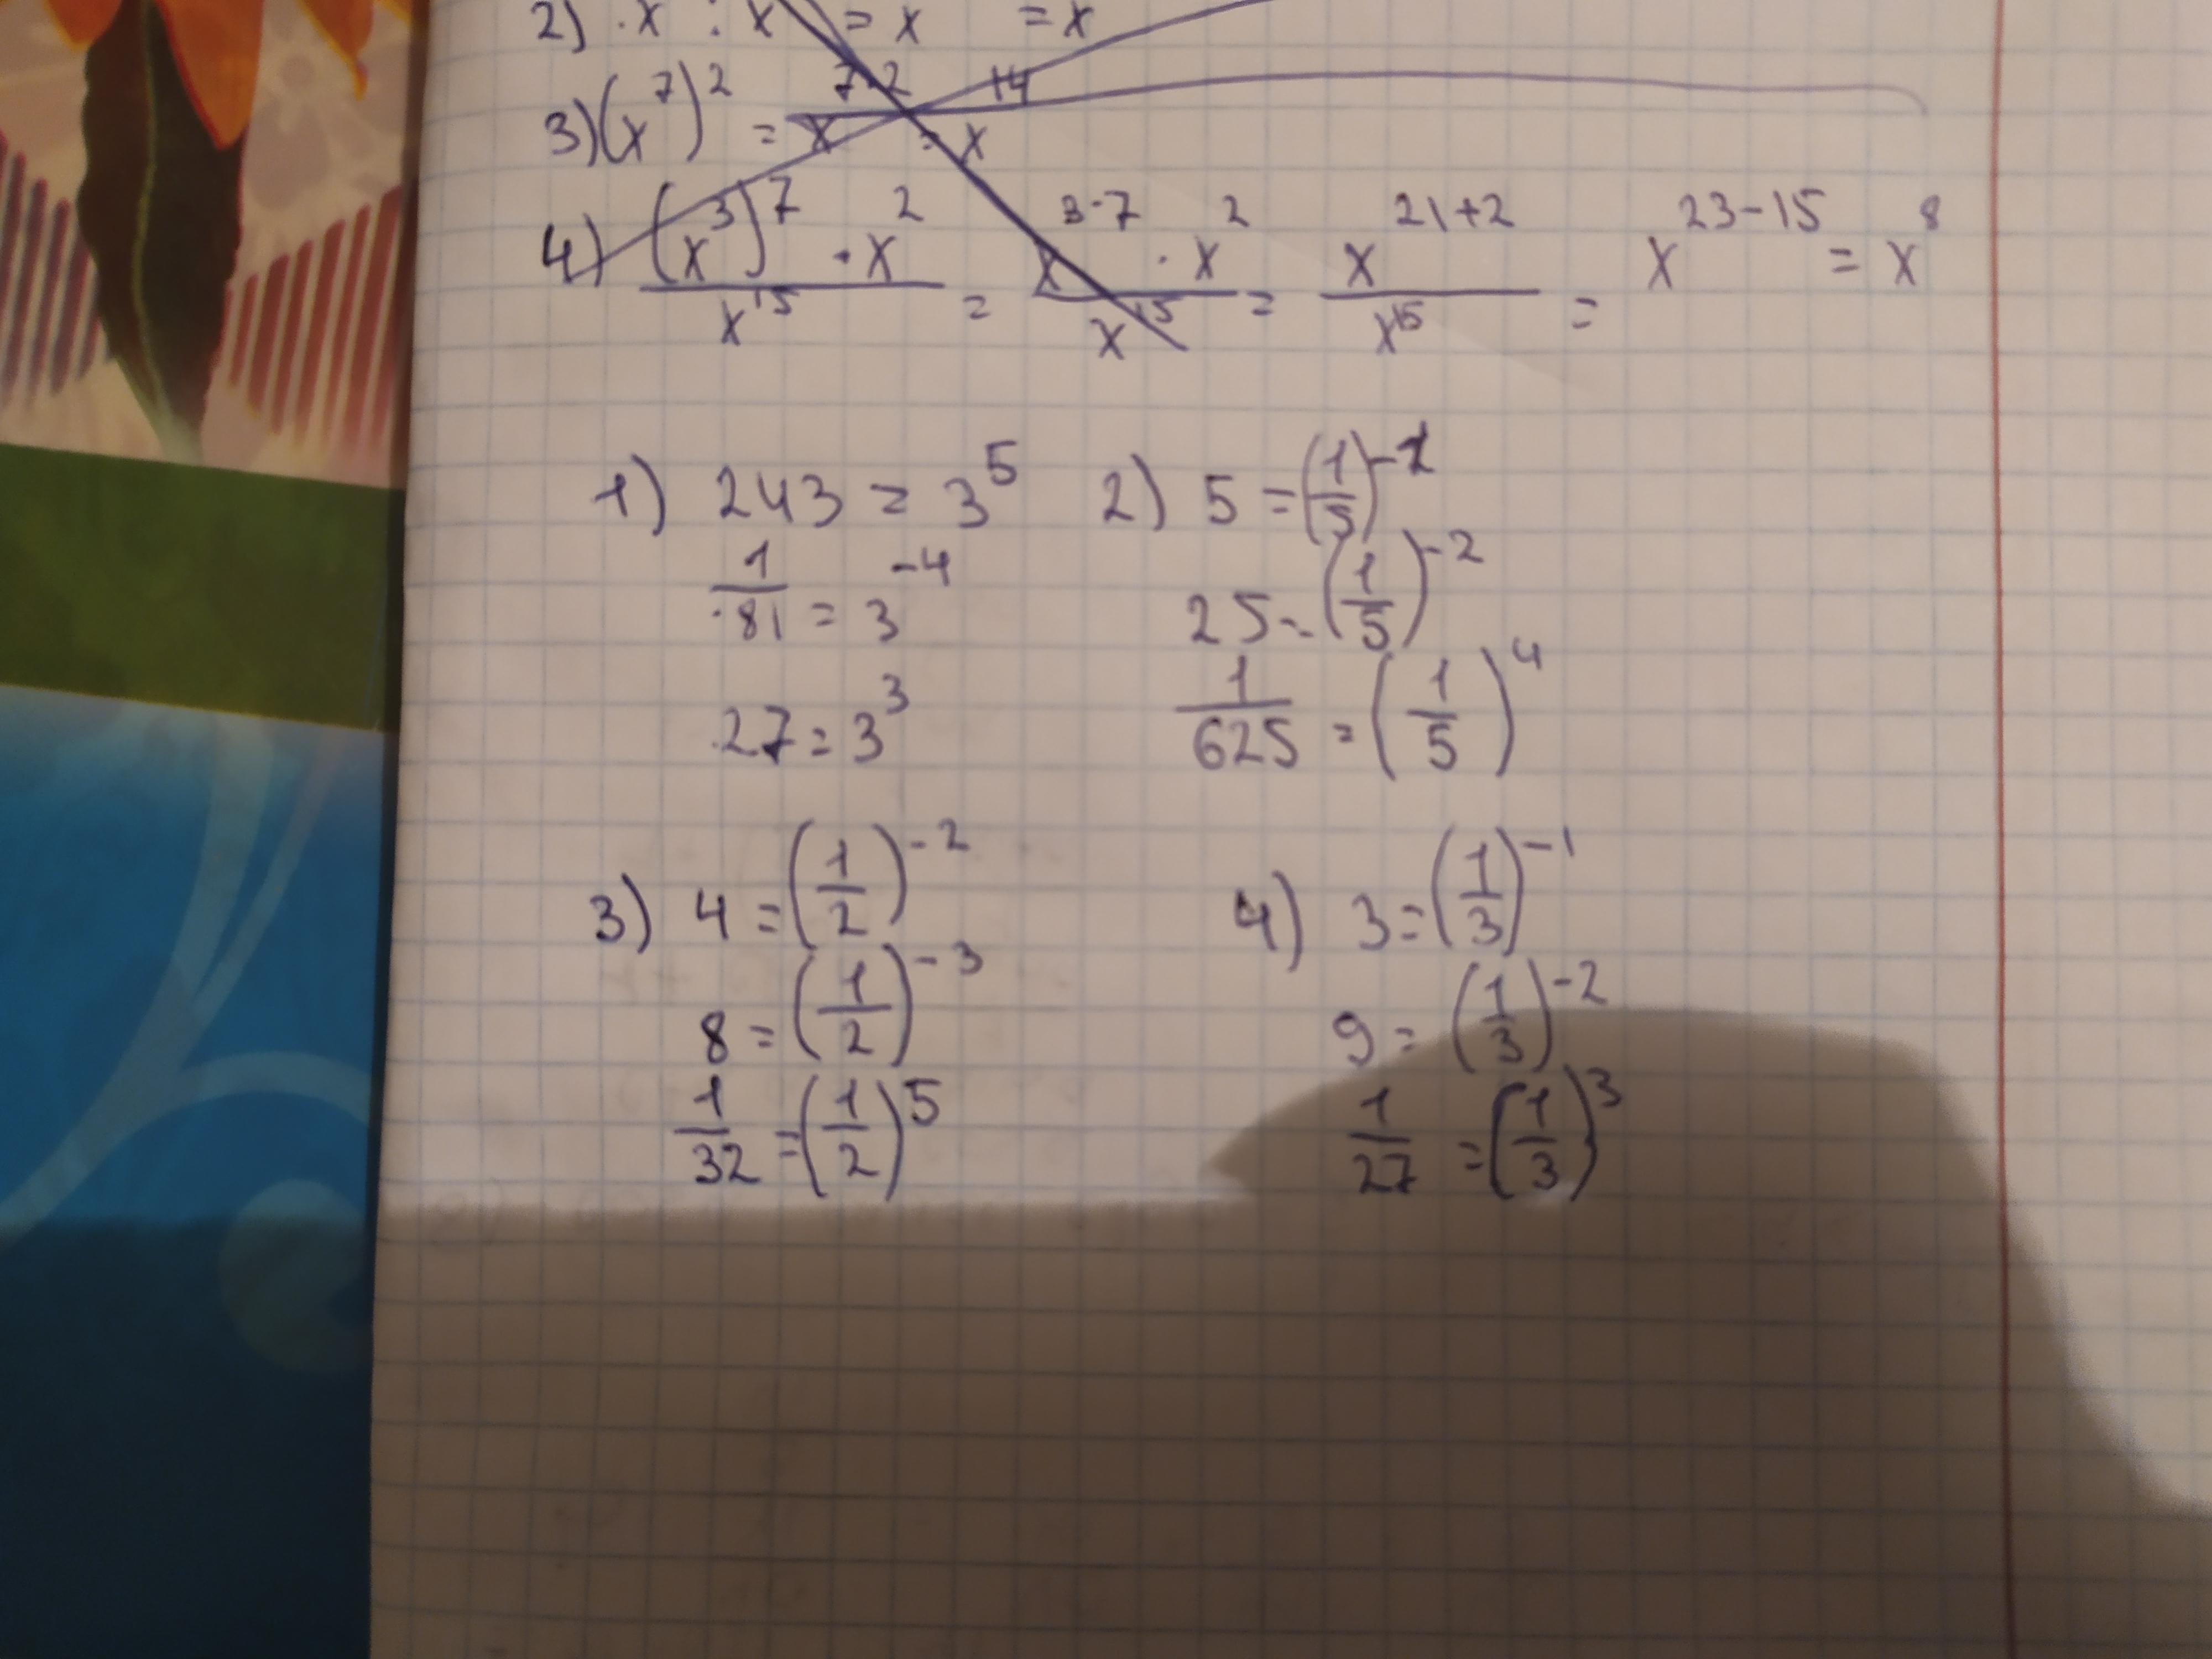 2) · x : x = x = x
3) (x^7)^2 = x^{7·2} = x^{14}
4) \frac{(x^3)^7 · x^2}{x^{15}} = \frac{x^{3·7} · x^2}{x^{15}} = \frac{x^{21+2}}{x^{15}} = x^{23-15} = x^8
1) 243 = 3^5
\frac{1}{81} = 3^{-4}
27 = 3^3
2) 5 = (\frac{1}{5})^{-1}
25 = (\frac{1}{5})^{-2}
\frac{1}{625} = (\frac{1}{5})^4
3) 4 = (\frac{1}{2})^{-2}
8 = (\frac{1}{2})^{-3}
\frac{1}{32} = (\frac{1}{2})^5
4) 3 = (\frac{1}{3})^{-1}
9 = (\frac{1}{3})^{-2}
\frac{1}{27} = (\frac{1}{3})^3